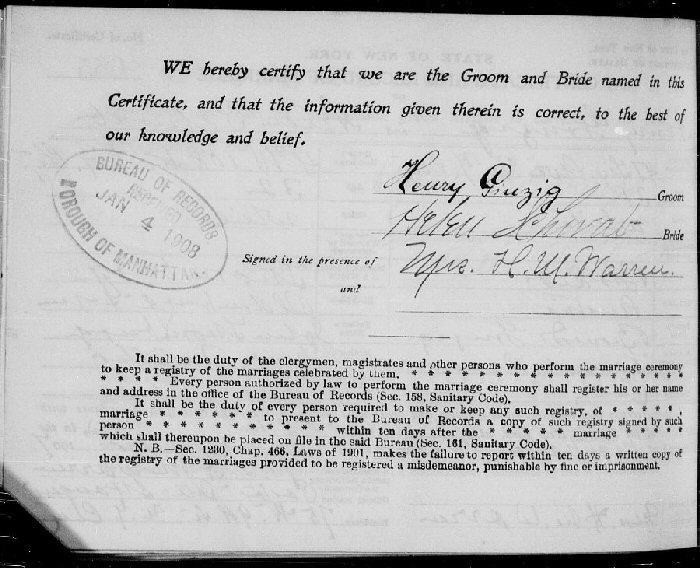 WE hereby certify that we are the Groom and Bride named in this
Certificate, and that the information given therein is correct, to the best of
our knowledge and belief.
BUREAU OF RECORDS
RECEIVED
JAN 4 1908
BOROUGH OF MANHATTAN.
Henry Gnezig Groom
Helen Schwab Bride
Signed in the presence of Mrs. H. M. Warren.
and
It shall be the duty of the clergymen, magistrates and other persons who perform the marriage ceremony
to keep a registry of the marriages celebrated by them. * * * * * * * * * * * * * * *
* * * * Every person authorized by law to perform the marriage ceremony shall register his or her name
and address in the office of the Bureau of Records (Sec. 158, Sanitary Code).
It shall be the duty of every person required to make or keep any such registry, of * * * * *,
marriage * * * * * * to present to the Bureau of Records a copy of such registry signed by such
person * * * * * * * * * * * within ten days after the * * * * marriage * * * *
which shall thereupon be placed on file in the said Bureau (Sec. 161, Sanitary Code).
N. B.—Sec. 1230, Chap. 466, Laws of 1901, makes the failure to report within ten days a written copy of
the registry of the marriages provided to be registered a misdemeanor, punishable by fine or imprisonment.